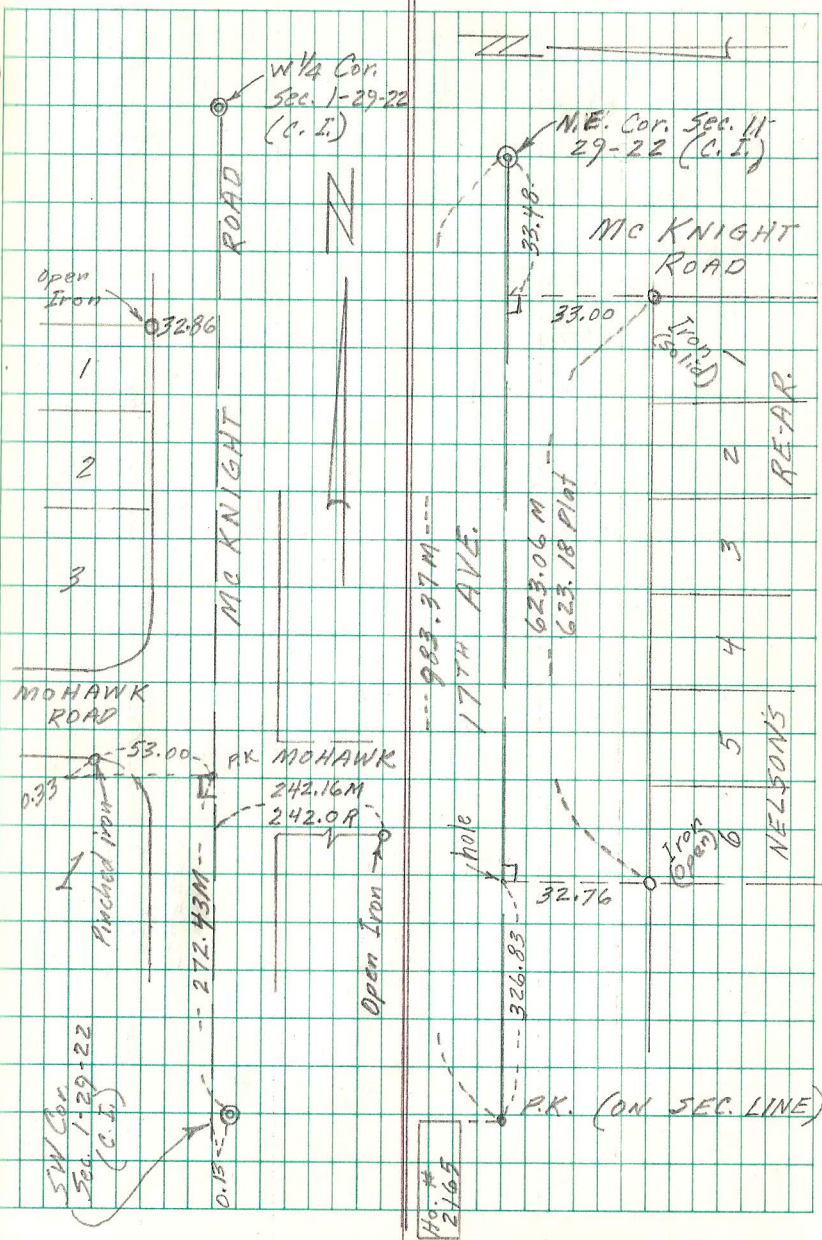 W 1/4 Cor.
Sec. 1-29-22
(C.I.)
N
ROAD
Open
Iron
32.86
1
2
3
MC KNIGHT
MOHAWK
ROAD
53.00
P.K. MOHAWK
0.33
242.16M
242.0R
Pinched iron
1
--272.43M--
Open Iron
SW Cor.
Sec. 1-29-22
(C.I.)
0.13--
N
N.E. Cor. Sec. 11-
29-22 (C.I.)
33.48
MC KNIGHT
ROAD
33.00
Iron
(Solid)
1
2
3
4
5
6
RE-AR.
NELSON'S
---983.37M---
17TH AVE.
--623.06 M--
623.18 Plat
hole
Iron
(Open)
32.76
326.83
P.K. (ON SEC. LINE)
Ho. #
2165